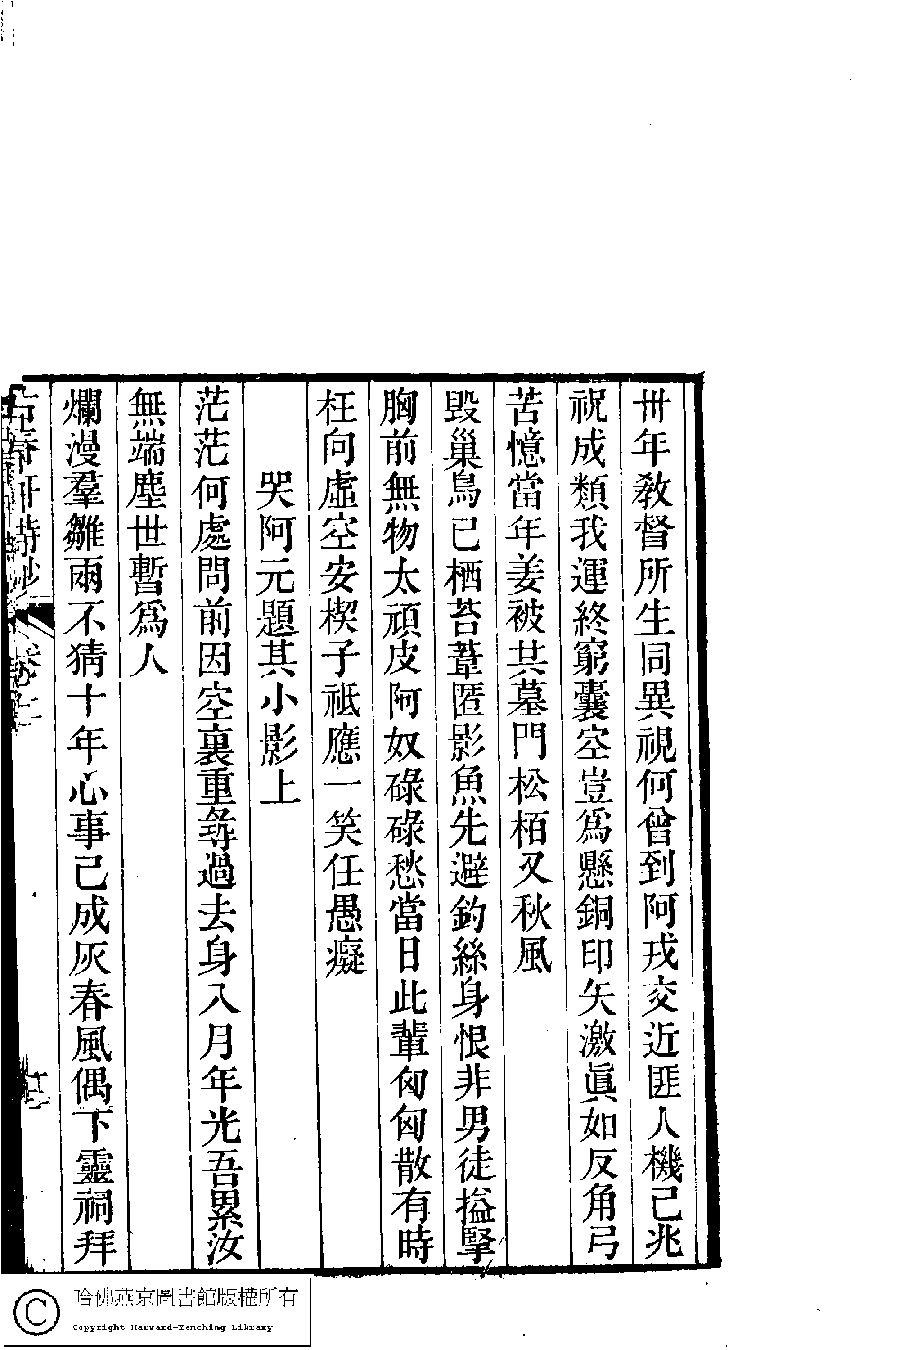 卅年敎督所生同異視何曾到阿戎交近匪人機已兆
祝成類我運終窮囊空豈爲懸銅印矢激眞如反角弓
苦憶當年姜被共墓門松栢又秋風
毀巢鳥已栖苕葦匿影魚先避釣絲身恨非男徒搤掔
胸前無物太頑皮阿奴碌碌愁當日此輩匆匆散有時
枉向虛空安楔子祗應一笑任愚癡
哭阿元題其小影上
茫茫何處問前因空裏重尋過去身入月年光吾累汝
無端塵世暫爲人
爛漫羣雛兩不猜十年心事已成灰春風偶下靈祠拜
哈佛燕京圖書館版權所有
Copyright Harvard-Yenching Library